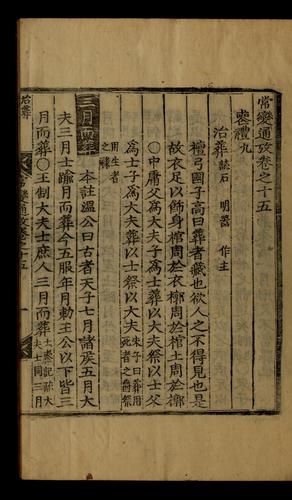 常變通攷卷之十五
喪禮九
治葬 誌石 明器 作主
檀弓國子高曰葬者藏也欲人之不得見也是
故衣足以飾身棺周於衣槨周於棺土周於槨
○中庸父爲大夫子爲士葬以大夫祭以士父
爲士子爲大夫葬以士祭以大夫 朱子曰葬用死者之爵祭
用生者之祿
三月而葬 本註溫公曰古者天子七月諸侯五月大
夫三月士踰月而葬今五服年月勅王公以下皆三
月而葬○王制大夫士庶人三月而葬 士喪記疏大夫士同三月
治葬
常變通攷卷十五
一